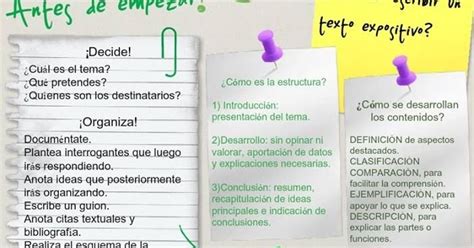 Antes de empezar!
escribir un
texto expositivo?
¡Decide!
¿Cuál es el tema?
¿Qué pretendes?
¿Quienes son los destinatarios?
¡Organiza!
Documéntate.
Plantea interrogantes que luego
irás respondiendo.
Anota ideas que posteriormente
irás organizando.
Escribe un guion.
Anota citas textuales y
bibliografía.
Realiza el esquema de la
¿Cómo es la estructura?
1) Introducción:
presentación del tema.
2)Desarrollo: sin opinar ni
valorar, aportación de datos
y explicaciones necesarias.
3)Conclusión: resumen,
recapitulación de ideas
principales e indicación de
conclusiones.
¿Cómo se desarrollan
los contenidos?
DEFINICIÓN de aspectos
destacados.
CLASIFICACIÓN
COMPARACIÓN, para
facilitar la comprensión.
EJEMPLIFICACIÓN, para
apoyar lo que se explica.
DESCRIPCIÓN, para
explicar las partes o
funciones.